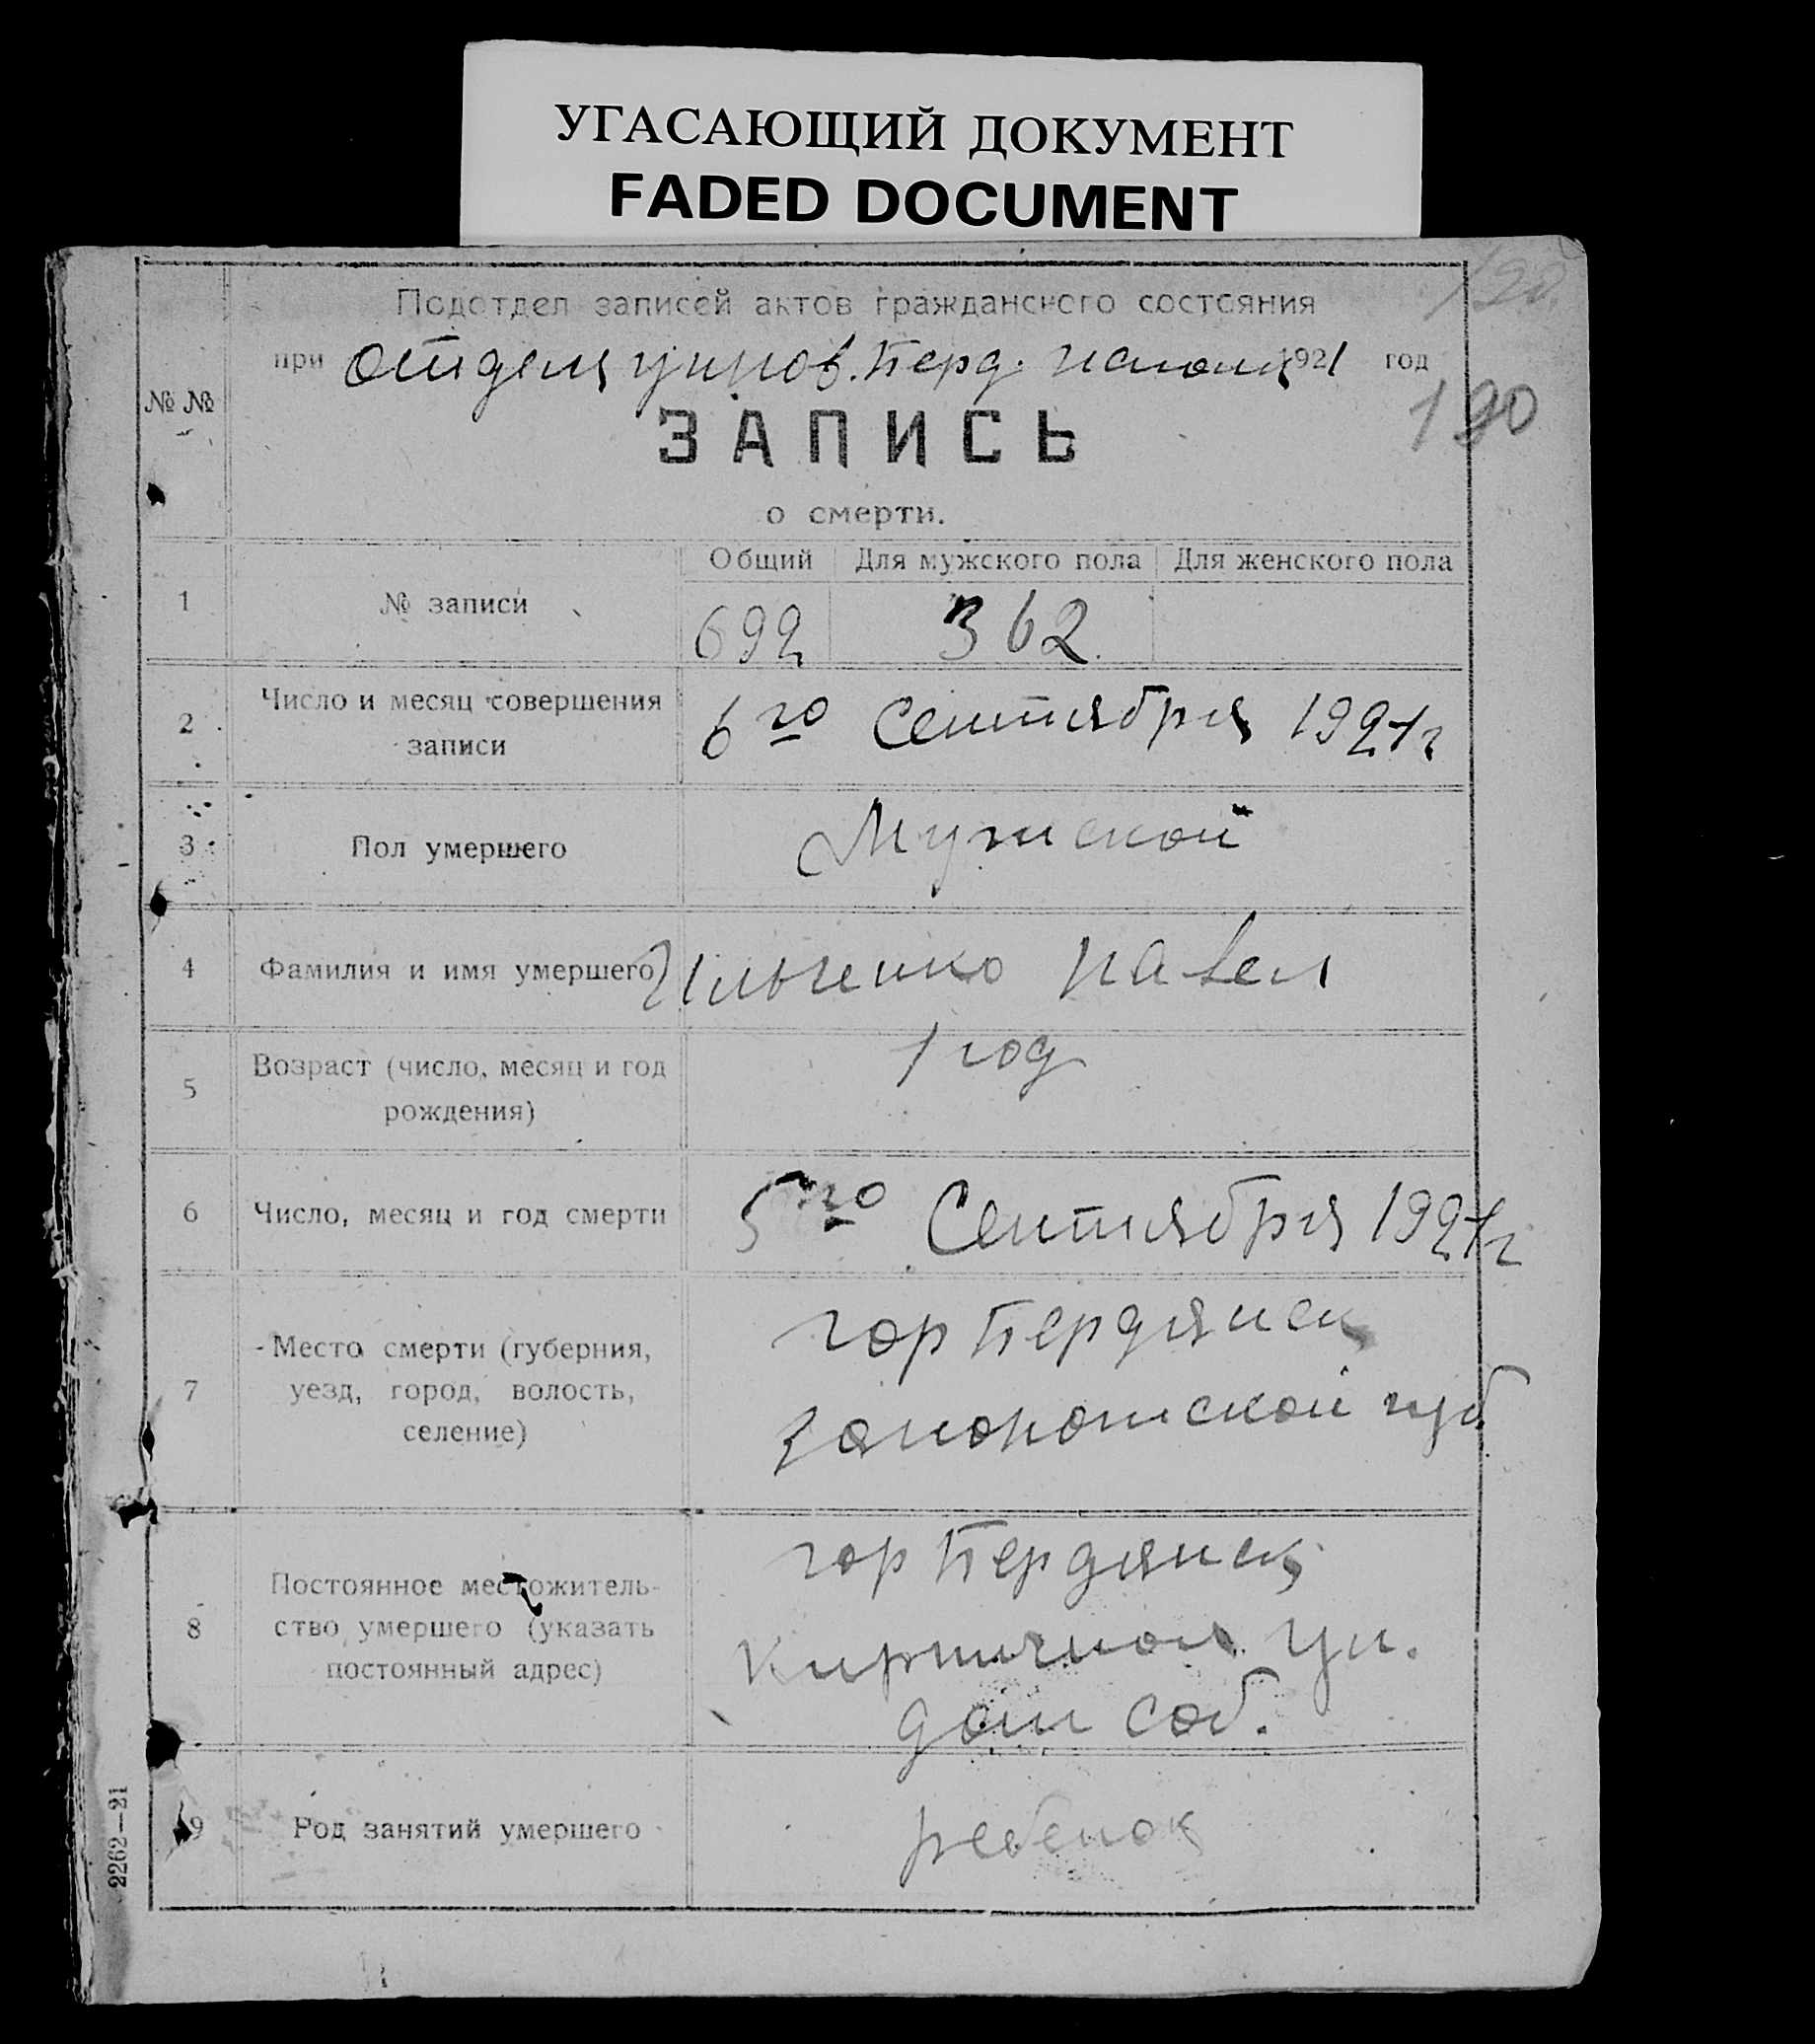 УГАСАЮЩИЙ ДОКУМЕНТ
FADED DOCUMENT
190
Подотдел записей актов гражданского состояния
при Отделе управ. Берд. исполк 1921 год
190
№ №
ЗАПИСЬ
о смерти.
Общий Для мужского пола Для женского пола
1 № записи 692 362
2 Число и месяц совершения
записи
6го Сентября 1921г
3 Пол умершего Мужской
4 Фамилия и имя умершего Ильченко Павел
5 Возраст (число, месяц и год
рождения)
1 год
6 Число, месяц и год смерти 5го Сентября 1921г
7 Место смерти (губерния,
уезд, город, волость,
селение)
гор Бердянск
Запорожской губ
8 Постоянное местожитель-
ство умершего (указать
постоянный адрес)
гор Бердянск
Кирпичная ул.
дом соб.
9 Род занятий умершего ребенок
2262—21